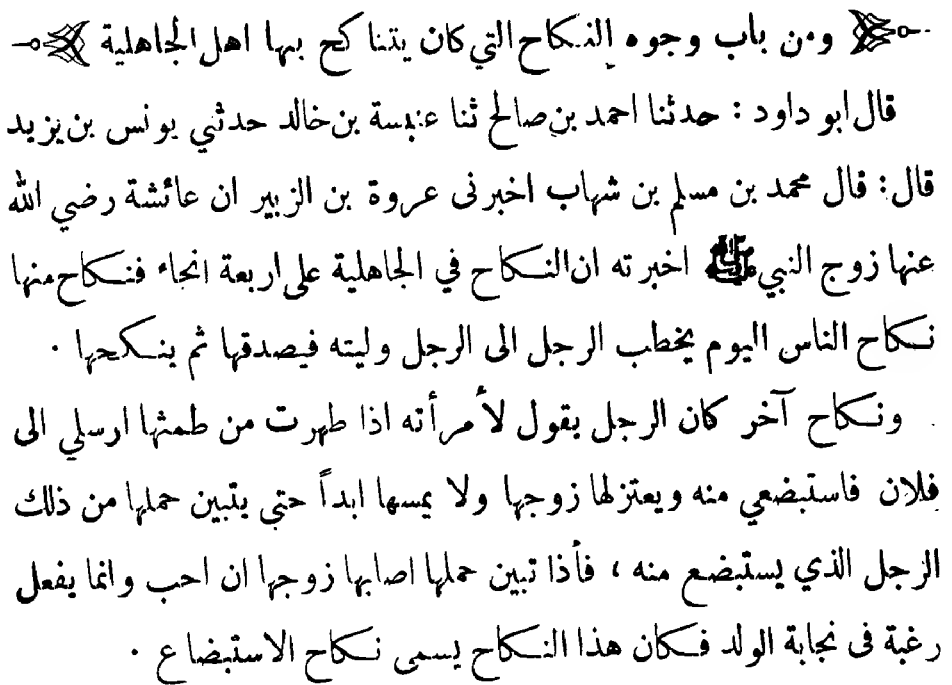 ومن باب وجوه النكاح التي كان يتناكح بها اهل الجاهلية
قال ابو داود : حدثنا احمد بن صالح ثنا عنبسة بن خالد حدثني يونس بن يزيد
قال : قال محمد بن مسلم بن شهاب اخبرنى عروة بن الزبير ان عائشة رضي الله
عنها زوج النبي ﷺ اخبرته ان النكاح في الجاهلية على اربعة انحاء فنكاح منها
نكاح الناس اليوم يخطب الرجل الى الرجل وليته فيصدقها ثم ينكحها .
ونكاح آخر كان الرجل يقول لأمرأته اذا طهرت من طمثها ارسلي الى
فلان فاستبضعي منه ويعتزلها زوجها ولا يمسها ابداً حتى يتبين حملها من ذلك
الرجل الذي يستبضع منه ، فأذا تبين حملها اصابها زوجها ان احب وانما يفعل
رغبة فى نجابة الولد فكان هذا النكاح يسمى نكاح الاستبضاع .